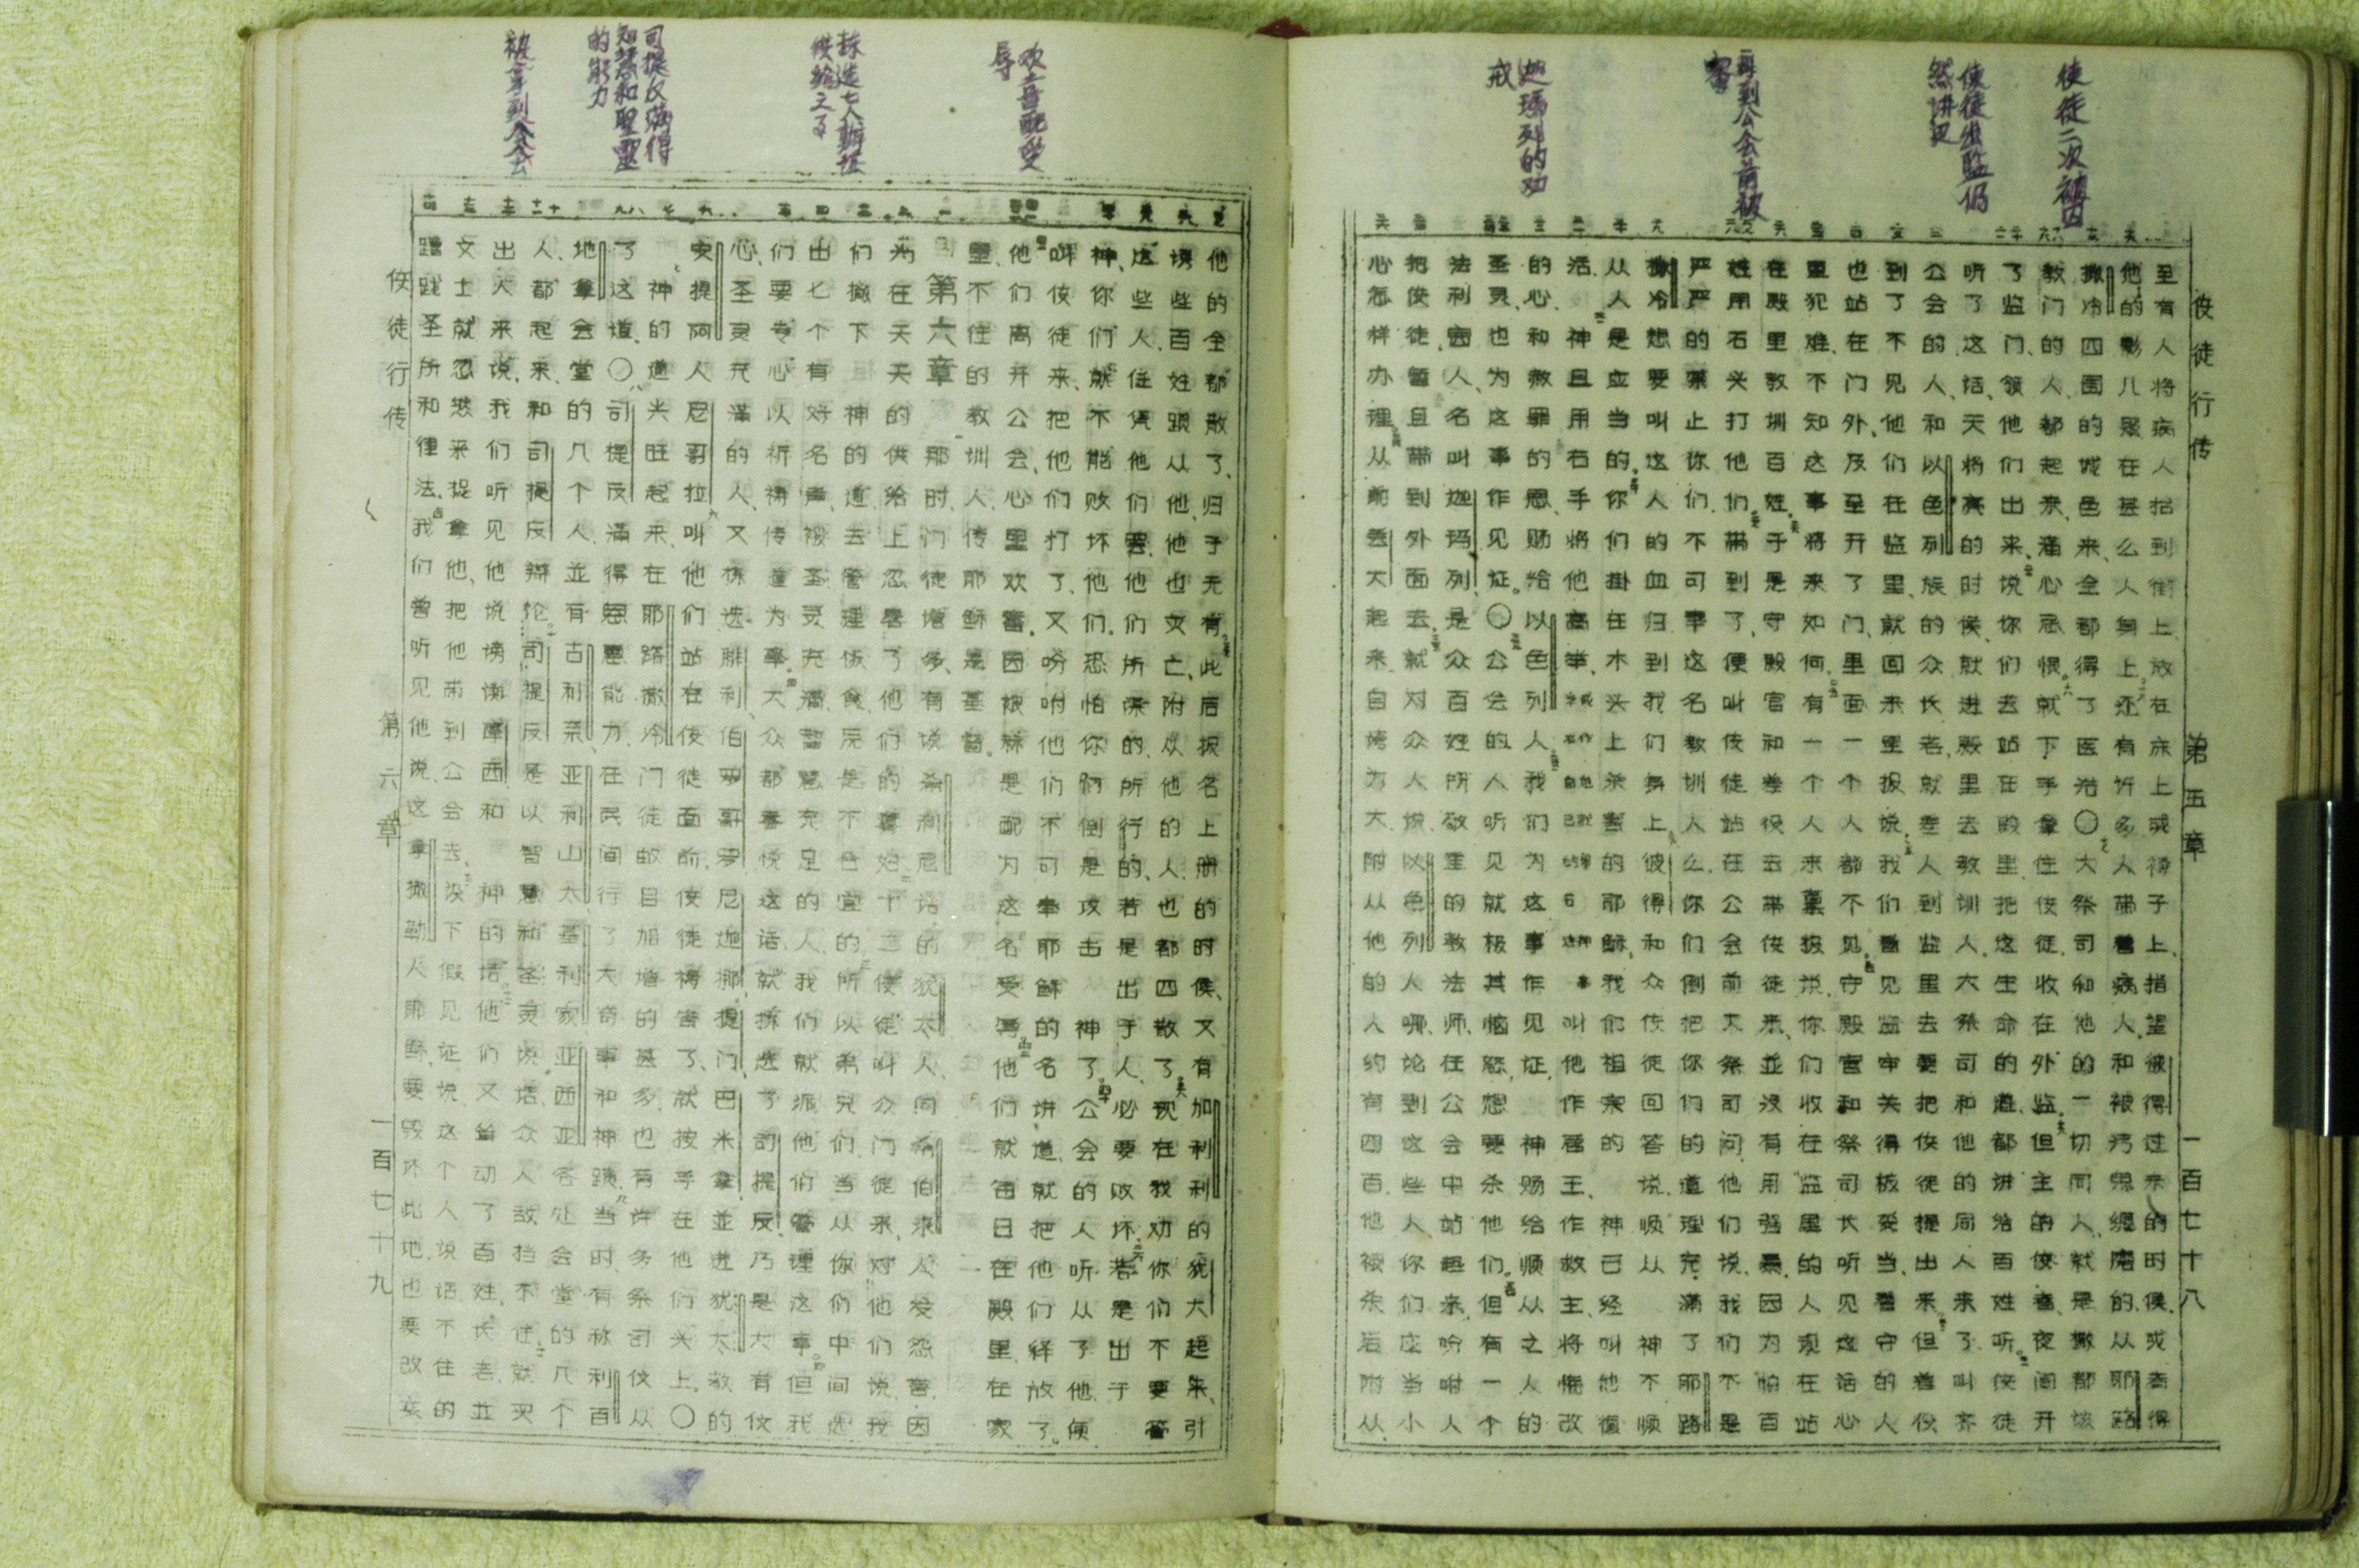 使徒二次被囚
使徒出监仍
然讲道
再到公会前被
审
迦玛列的劝
戒
使徒行传 第五章 一百七十八
至有人将病人抬到街上、放在床上或褥子上、指望彼得过来的时侯、或者得
他的影儿照在甚么人身上。还有许多人带着病人、和被污鬼缠磨的、从耶路
撒冷四围的城邑来、全都得了医治〇大祭司和他的一切同人、就是撒都该
教门的人、都起来、满心忌恨。就下手拿住使徒、收在外监。但主的使者、夜间开
了监门、领他们出来、说、你们去站在殿里、把这生命的道、都讲给百姓听。使徒
听了这话、天将亮的时侯、就进殿里去教训人。大祭司和他的同人来了、叫齐
公会的人、和以色列族的众长老、就差人到监里去、要把使徒提出来。但差役
到了、不见他们在监里、就回来报说、我们看见监牢关得极妥当、看守的人
也站在门外、及至开了门、里面一个人都不见。守殿官和祭司长听见这话、心
里犯难、不知这事将来如何。有一个人来禀报说、你们收在监里的人、现在站
在殿里教训百姓。于是守殿官和差役去带使徒来、並没有用强暴、因为怕百
姓用石头打他们。带到了、便叫使徒站在公会前、大祭司问他们说、我们不是
严严的禁止你们、不可奉这名教训人么、你们倒把你们的道理充满了耶路
撒冷、想要叫这人的血归到我们身上。彼得和众使徒回答说、顺从 神不顺
从人、是应当的。你们掛在木头上杀害的耶稣、我们祖宗的 神已经叫他復
活。 神且用右手将他高举、叫他作君王、作救主、将悔改
的心、和赦罪的恩赐给以色列人。我们为这事作见证、 神赐给顺从之人的
圣灵、也为这事作见证。〇公会的人听见就极其恼怒、想要杀他们。但有一个
法利赛人、名叫迦玛列、是众百姓所敬重的教法师、在公会中站起来、吩咐人
把使徒暂且带到外面去。就对众人说、以色列人哪、论到这些人、你们应当小
心怎样办理。从前丢大起来、自夸为大、附从他的人约有四百、他被杀后、附从
欢喜配受
辱
拣选七人办理
供给之事
司提反满得
智慧和聖靈
的能力
被拿到公会去
他的全都散了、归于无有。此后报名上册的时侯、又有加利利的犹大起来、引
诱些百姓跟从他、他也灭亡、附从他的人也都四散了。现在我劝你们不要管
这些人、任凭他们罢、他们所谋的、所行的、若是出于人、必要败坏。若是出于
神、你们就不能败坏他们、恐怕你们倒是攻击 神了。公会的人听从了他、便
叫使徒来、把他们打了、又吩咐他们不可奉耶稣的名讲道、就把他们释放了。
他们离开公会、心里欢喜、因被算是配为这名受辱。他们就每日在殿里、在家
里、不住的教训人、传耶稣是基督。
第六章 那时、门徒增多、有说希利尼话的犹太人、向希伯来人发怨言、因
为在天天的供给上忽略了他们的寡妇。十二使徒叫众门徒来、对他们说、我
们撇下 神的道、去管理饭食、原是不合宜的。所以弟兄们、当从你们中间选
出七个有好名声、被圣灵充满、智慧充足的人、我们就派他们管理这事。但我
们要专心以祈祷传道为事。大众都喜悦这话、就拣选了司提反、乃是大有信
心、圣灵充满的人、又拣选腓利、伯罗哥罗、尼迦挪、提门、巴米拿、並进犹太教的
安提阿人尼哥拉、叫他们站在使徒面前、使徒祷告了、就按手在他们头上。〇
神的道兴旺起来、在耶路撒冷门徒的数目加增的甚多、也有许多祭司信从
了这道。〇司提反满得恩惠能力、在民间行了大奇事和神蹟。当时有称利百
地拿会堂的几个人、並有古利奈、亚利山太、基利家、亚西亚、各处会堂的几个
人、都起来、和司提反辩论。司提反是以智慧和圣灵说话、众人敌挡不住。就买
出人来说、我们听见他说谤讟摩西和 神的话。他们又耸动了百姓、长老、並
文士、就忽然来捉拿他、把他带到公会去。设下假见证说、这个人说话、不住的
蹧践圣所和律法。我们曾听见他说、这拿撒勒人耶稣、要毁坏此地、也要改变
使徒行传 第六章 一百七十九